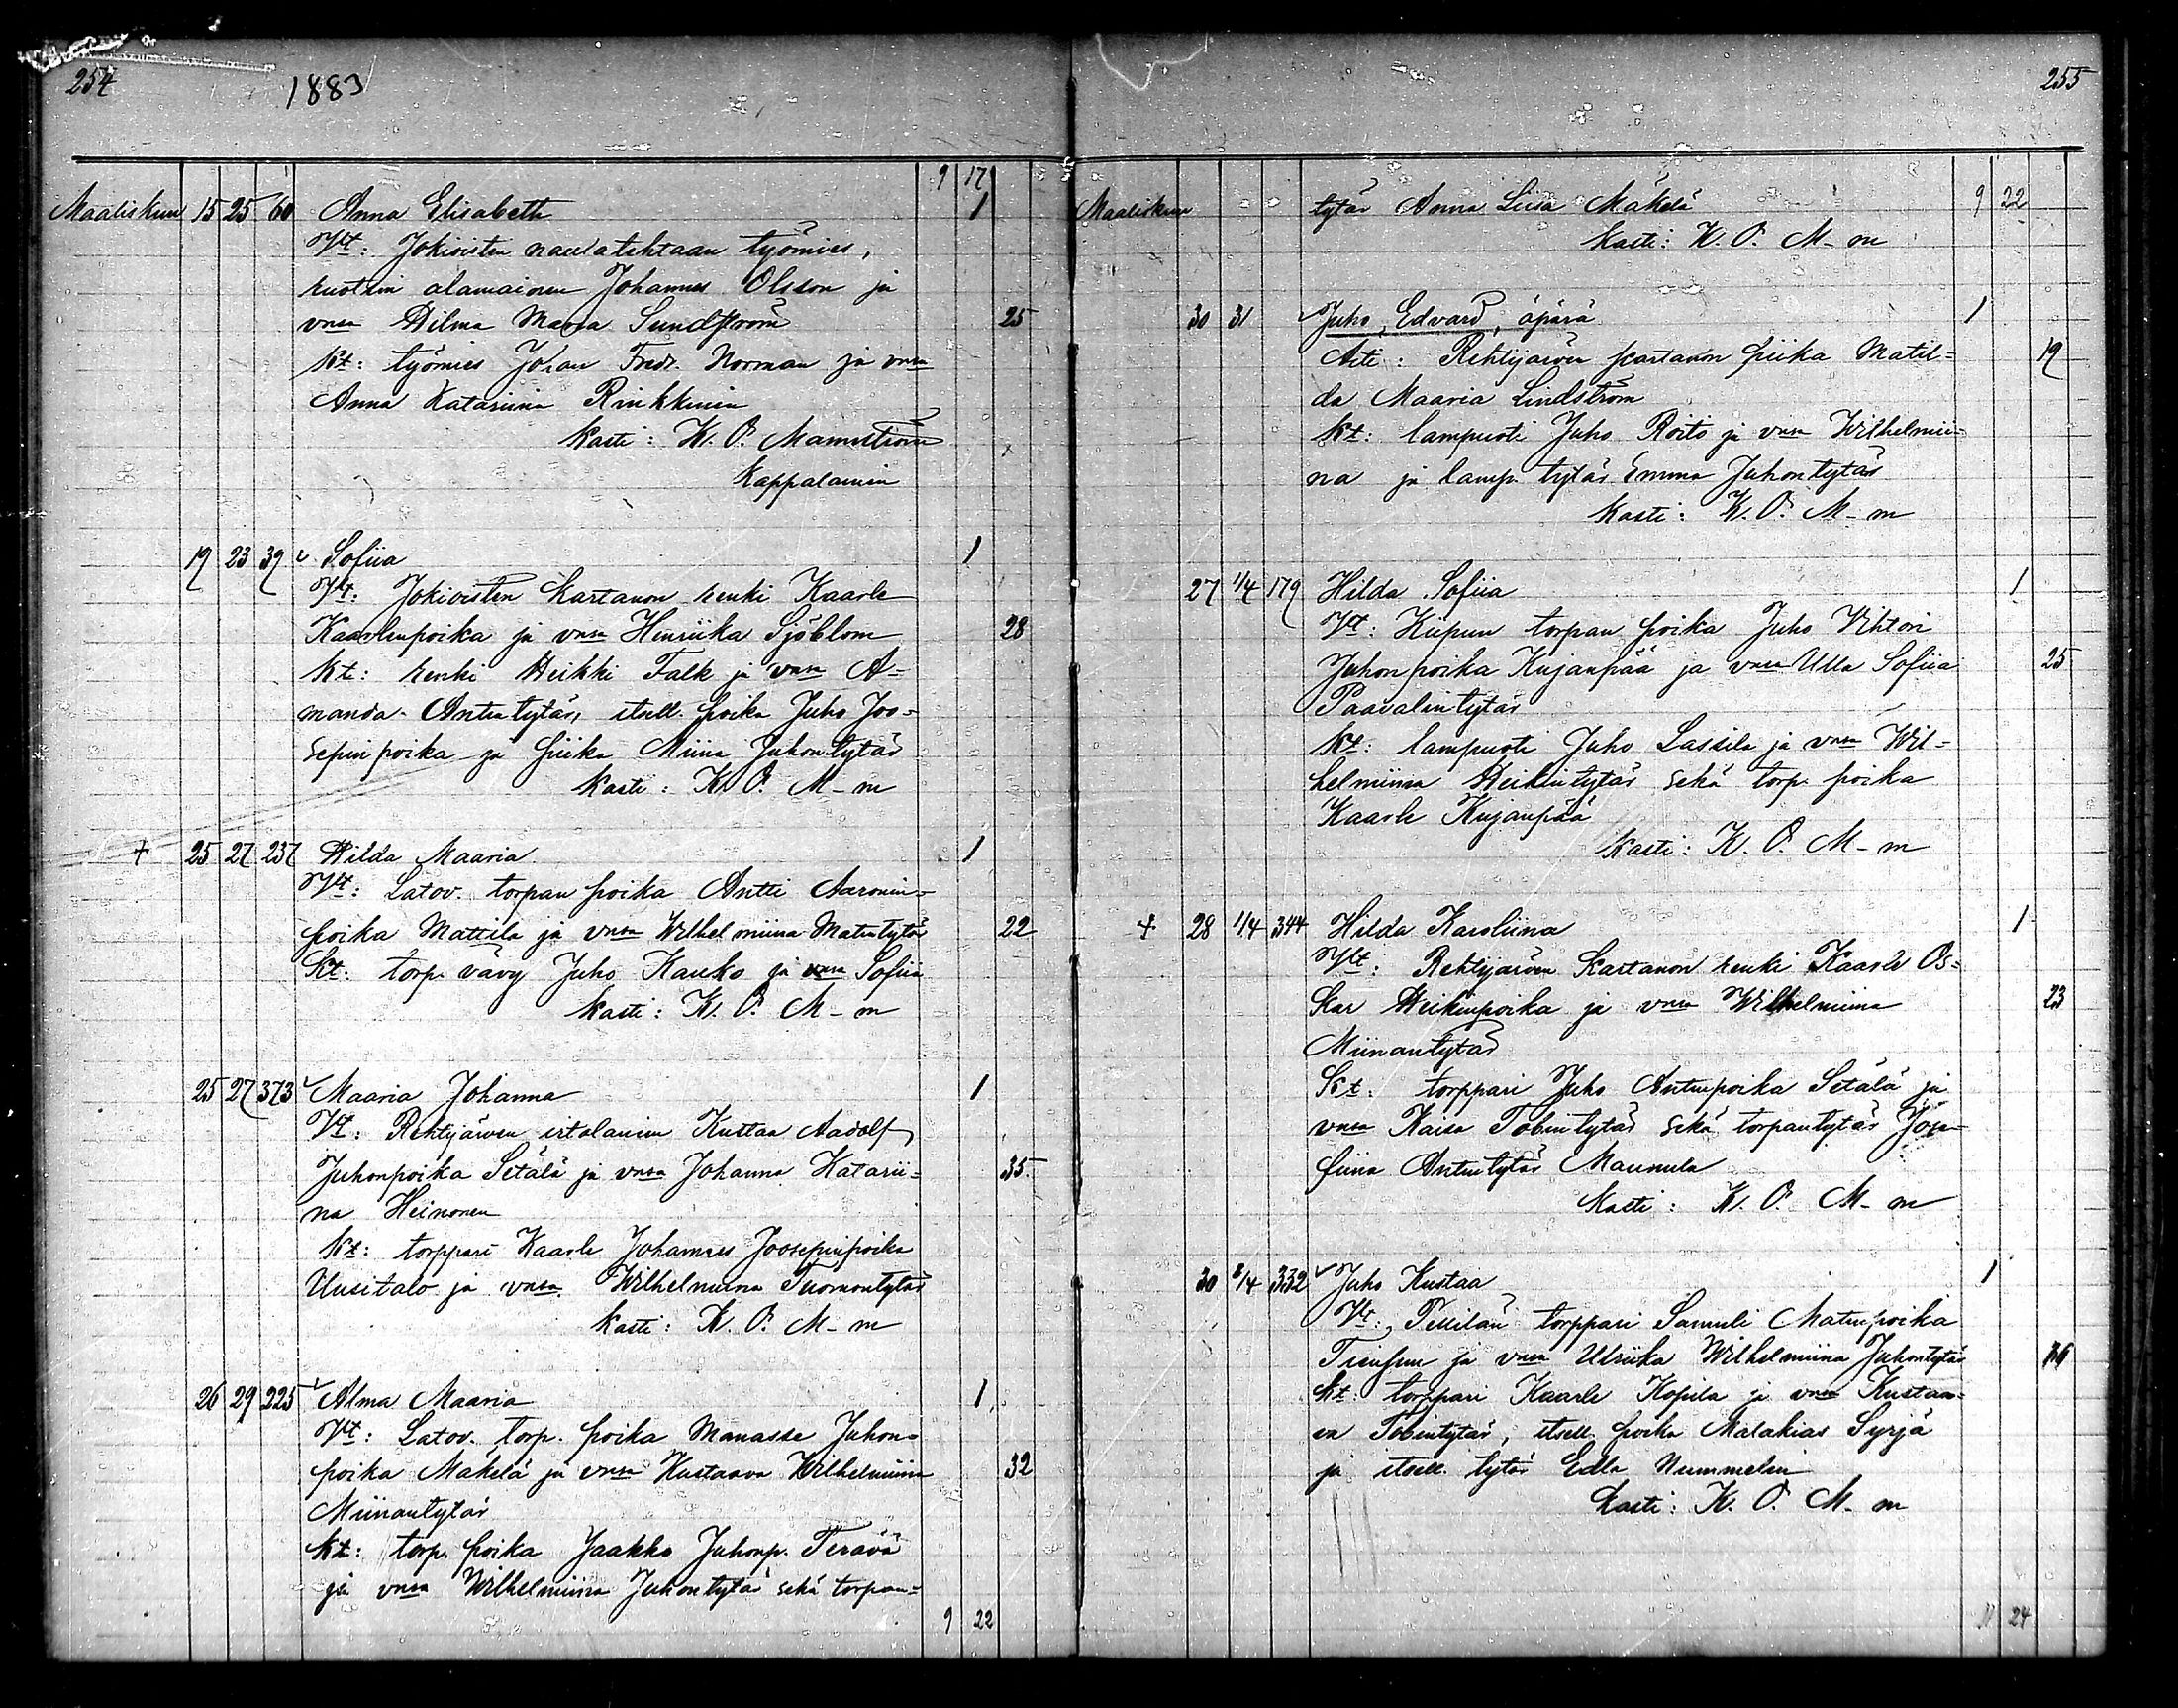 254
1883
9 17
Maaliskuu 15 25 60 Anna Elisabeth 1
Vt: Jokioisten naulatehtaan työmies,
ruotsin alamainen Johannes Olsson ja
vmsa Hilma Maria Sundström 25
Kt: työmies Johan Fredr. Norman ja vmsa
Anna Katariina Rinkkinen
Kasti: K. O. Mannström
Kappalainen
19 23 39 Sofiia 1
Vt: Jokioisten Kartanon renki Kaarle
Kaarlenpoika ja vmsa Henriika Sjöblom 28
Kt: renki Heikki Falk ja vmsa A-
manda Antintytär, itsell. poika Juho Joo-
sepinpoika ja piika Miina Juhontytär
Kasti: K. O. M-m
+ 25 27 237 Hilda Maaria 1
Vt: Latov. torpan poika Antti Aaronin-
poika Mattila ja vmsa Wilhelmiina Matintytär 22
Kt: torp. vävy Juho Kauko ja vmsa Sofiia
Kasti: K. O. M-m
25 27 373 Maaria Johanna 1
Vt: Rehtijärven irtolainen Kustaa Aadolf
Juhonpoika Setälä ja vmsa Johanna Katarii- 35
na Heinonen
Kt: torppari Kaarle Johannes Joosepinpoika
Uusitalo ja vmsa Wilhelmiina Tuomontytär
Kasti: K. O. M-m
26 29 225 Alma Maaria 1
Vt: Latov. torp. poika Manasse Juhon-
poika Mäkelä ja vmsa Kustaava Wilhelmiina 32
Miinantytär
Kt: torp. poika Jaakko Juhonp. Terävä
ja vmsa Wilhelmiina Juhontytär sekä torpan-
9 22
255
Maaliskuu tytär Anna Liisa Mäkelä 9 22
Kasti: K. O. M-m
30 31 Juho Edvard, äpärä 1
Äiti: Rehtijärven kartanon piika Matil- 19
da Maaria Lindström
Kt: lampuoti Juho Roito ja vmsa Wilhelmii-
na ja lamp. tytär Emma Juhontytär
Kasti: K. O. M-m
27 1/4 179 Hilda Sofiia 1
Vt: Kiipun torpan poika Juho Vihtori
Juhonpoika Kujanpää ja vmsa Ulla Sofiia 25
Paavalintytär
Kt: lampuoti Juho Lassila ja vmsa Wil-
helmiina Heikintytär sekä torp. poika
Kaarle Kujanpää
Kasti: K. O. M-m
+ 28 1/4 344 Hilda Karoliina 1
Vt: Rehtijärven Kartanon renki Kaarle Os-
kar Heikinpoika ja vmsa Wilhelmiina 23
Miinantytär
Kt: torppari Juho Antinpoika Setälä ja
vmsa Kaisa Tobintytär sekä torpantytär Jose-
fiina Antintytär Maunula
Kasti: K. O. M-m
30 2/4 332 Juho Kustaa 1
Vt: torppari Samuli Matinpoika
ja vmsa Ulriika Wilhelmiina Juhontytär
Kt: torppari Kaarle Kopila ja vmsa Kustaa-
va Tobintytär, itsell. poika Malakias Syrjä
ja itsell. tytär Edla Nummelin
Kasti: K. O. M-m
11 24